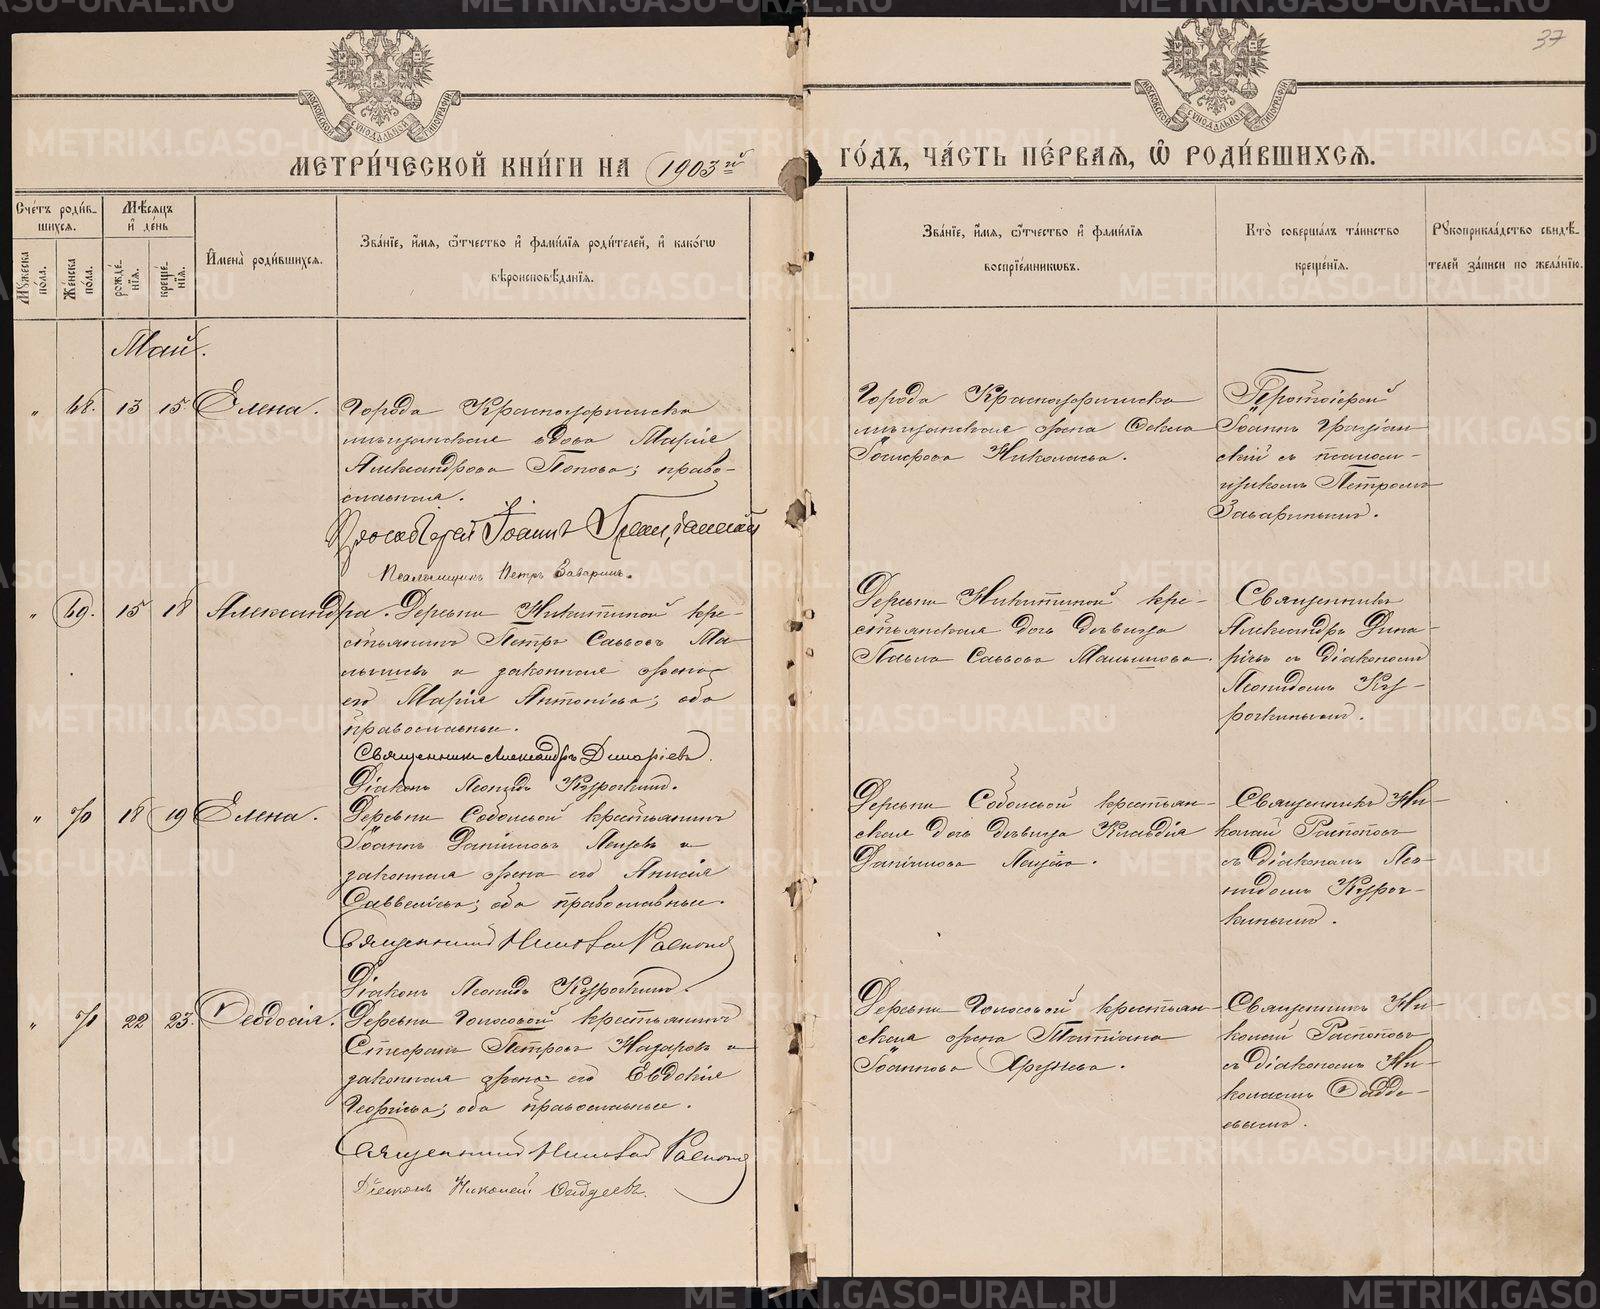 37
МОСКОВСКОЙ СѴНОДАЛЬНОЙ ТИПОГРАФІИ
МОСКОВСКОЙ СѴНОДАЛЬНОЙ ТИПОГРАФІИ
МЕТРИ́ЧЕСКОЙ КНИ́ГИ НА 1903й
ГО́ДЪ, ЧА́СТЬ ПЕ́РВАѦ, Ѡ РОДИ́ВШИХСѦ.
Сче́тъ роди́в-
шихсѧ.
Мꙋ́жеска по́ла.
Же́нска по́ла.
Мѣ́сѧцъ
и де́нь
рожде́-
нїѧ.
креще́-
нїѧ.
Имена̀ роди́вшихсѧ.
Зва́нїе, и́мѧ, ѻ́тчество и фами́лїѧ роди́телей, и како́гѡ
вѣроисповѣ́данїѧ.
Зва́нїе, и́мѧ, ѻ́тчество и фами́лїѧ
воспрїе́мникѡвъ.
Кто̀ соверша́лъ та́инство
креще́нїѧ.
Рꙋкоприкла́дство свидѣ́-
телей за́писи по жела́нїю.
Май.
" 68. 13 15 Елена.
Города Красноуфимска
мѣщанская вдова Марія
Александрова Попова; право-
славная.
Протоіерей Іоаннъ Граціанскій
Псаломщикъ Петръ Заваринъ.
Города Красноуфимска
мѣщанская жена Ѳекла
Іосифова Николаева.
Протоіерей
Іоаннъ Граціан-
скій съ псалом-
щикомъ Петромъ
Заваринымъ.
" 69. 15 18 Александра.
Деревни Никитиной кре-
стьянинъ Петръ Саввовъ Ма-
лышевъ и законная жена
его Марія Антоніева; оба
православные.
Священникъ Александръ Динаріевъ.
Діаконъ Леонидъ Курочкинъ.
Деревни Никитиной кре-
стьянская дочь дѣвица
Павла Саввова Малышова.
Священникъ
Александръ Дина-
ріевъ съ діакономъ
Леонидомъ Ку-
рочкинымъ.
" 70 18 19 Елена.
Деревни Соболевой крестьянинъ
Іоаннъ Даніиловъ Лещевъ и
законная жена его Анисія
Савельева; оба православные.
Священникъ Николай Распоповъ
Діаконъ Леонидъ Курочкинъ.
Деревни Соболевой крестьян-
ская дочь дѣвица Клавдія
Даніилова Лещева.
Священникъ Ни-
колай Распоповъ
съ діакономъ Лео-
нидомъ Куроч-
кинымъ.
" 71 22 23. Ѳеодосія.
Деревни Голосовой крестьянинъ
Стефанъ Петровъ Назаровъ и
законная жена его Евдокія
Георгіева; оба православные.
Священникъ Николай Распоповъ
Діаконъ Николай Ѳаддеевъ.
Деревни Голосовой крестьян-
ская жена Татіана
Іоаннова
Священникъ Ни-
колай Распоповъ
съ діакономъ Ни-
колаемъ Ѳадде-
евымъ.
METRIKI.GASO-URAL.RU